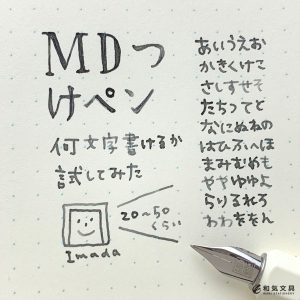 MDつ
けペン
何文字書けるか
試してみた
20〜50
くらい
Imada
あいうえお
かきくけこ
さしすせそ
たちつてと
なにぬねの
はひふへほ
まみむめも
ややゆゆよ
らりるれろ
わわををん
和気文具